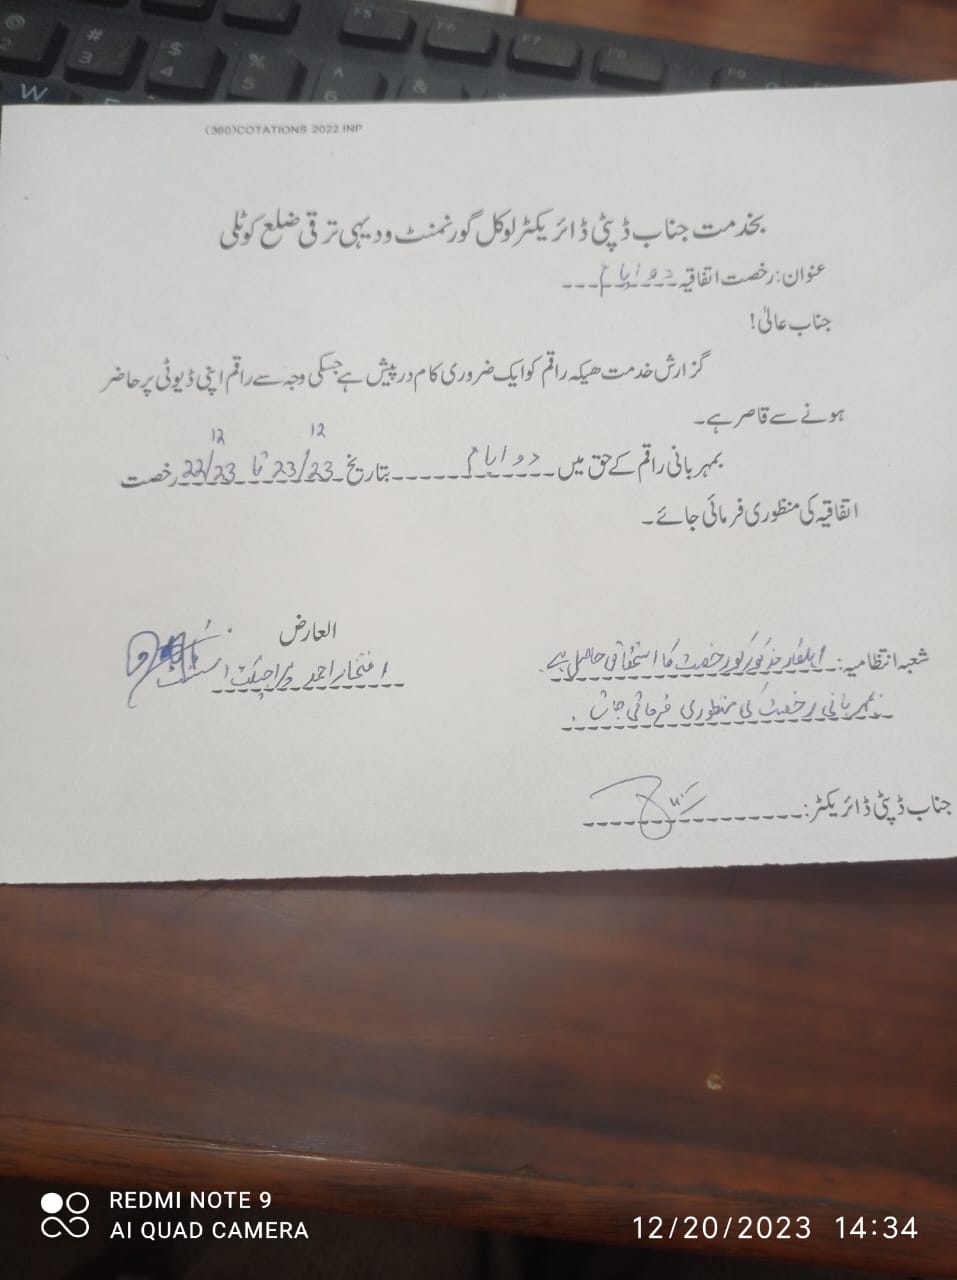 (360)COTATIONS 2022.INP
بخدمت جناب ڈپٹی ڈائریکٹر لوکل گورنمنٹ و دیہی ترقی ضلع کوٹلی
عنوان: رخصت اتفاقیہ دو ایام
جناب عالیٰ!
گزارش خدمت ھیکہ راقم کو ایک ضروری کام درپیش ہے جسکی وجہ سے راقم اپنی ڈیوٹی پر حاضر
ہونے سے قاصر ہے۔
بمہربانی راقم کے حق میں دو ایام بتاریخ 22/12/23 تا 23/12/23 رخصت
اتفاقیہ کی منظوری فرمائی جائے۔
العارض
افتخار احمد پراجیکٹ اسسٹنٹ
شعبہ انتظامیہ: اہلکار مذکور کو رخصت کا استحقاق حاصل ہے۔
بمہربانی رخصت کی منظوری فرمائی جائے۔
جناب ڈپٹی ڈائریکٹر:
@ 2 # 3 $ 4 % 5 ^ 6 &
W
F5 F6 F7 F8 F9
REDMI NOTE 9
AI QUAD CAMERA
12/20/2023 14:34